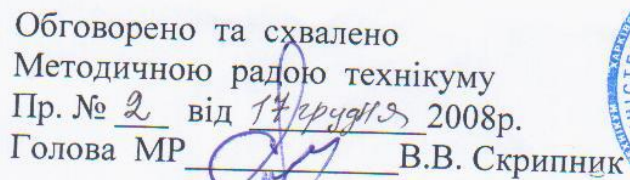 Обговорено та схвалено
Методичною радою технікуму
Пр. № 2 від 17 грудня 2008р.
Голова МР В.В. Скрипник